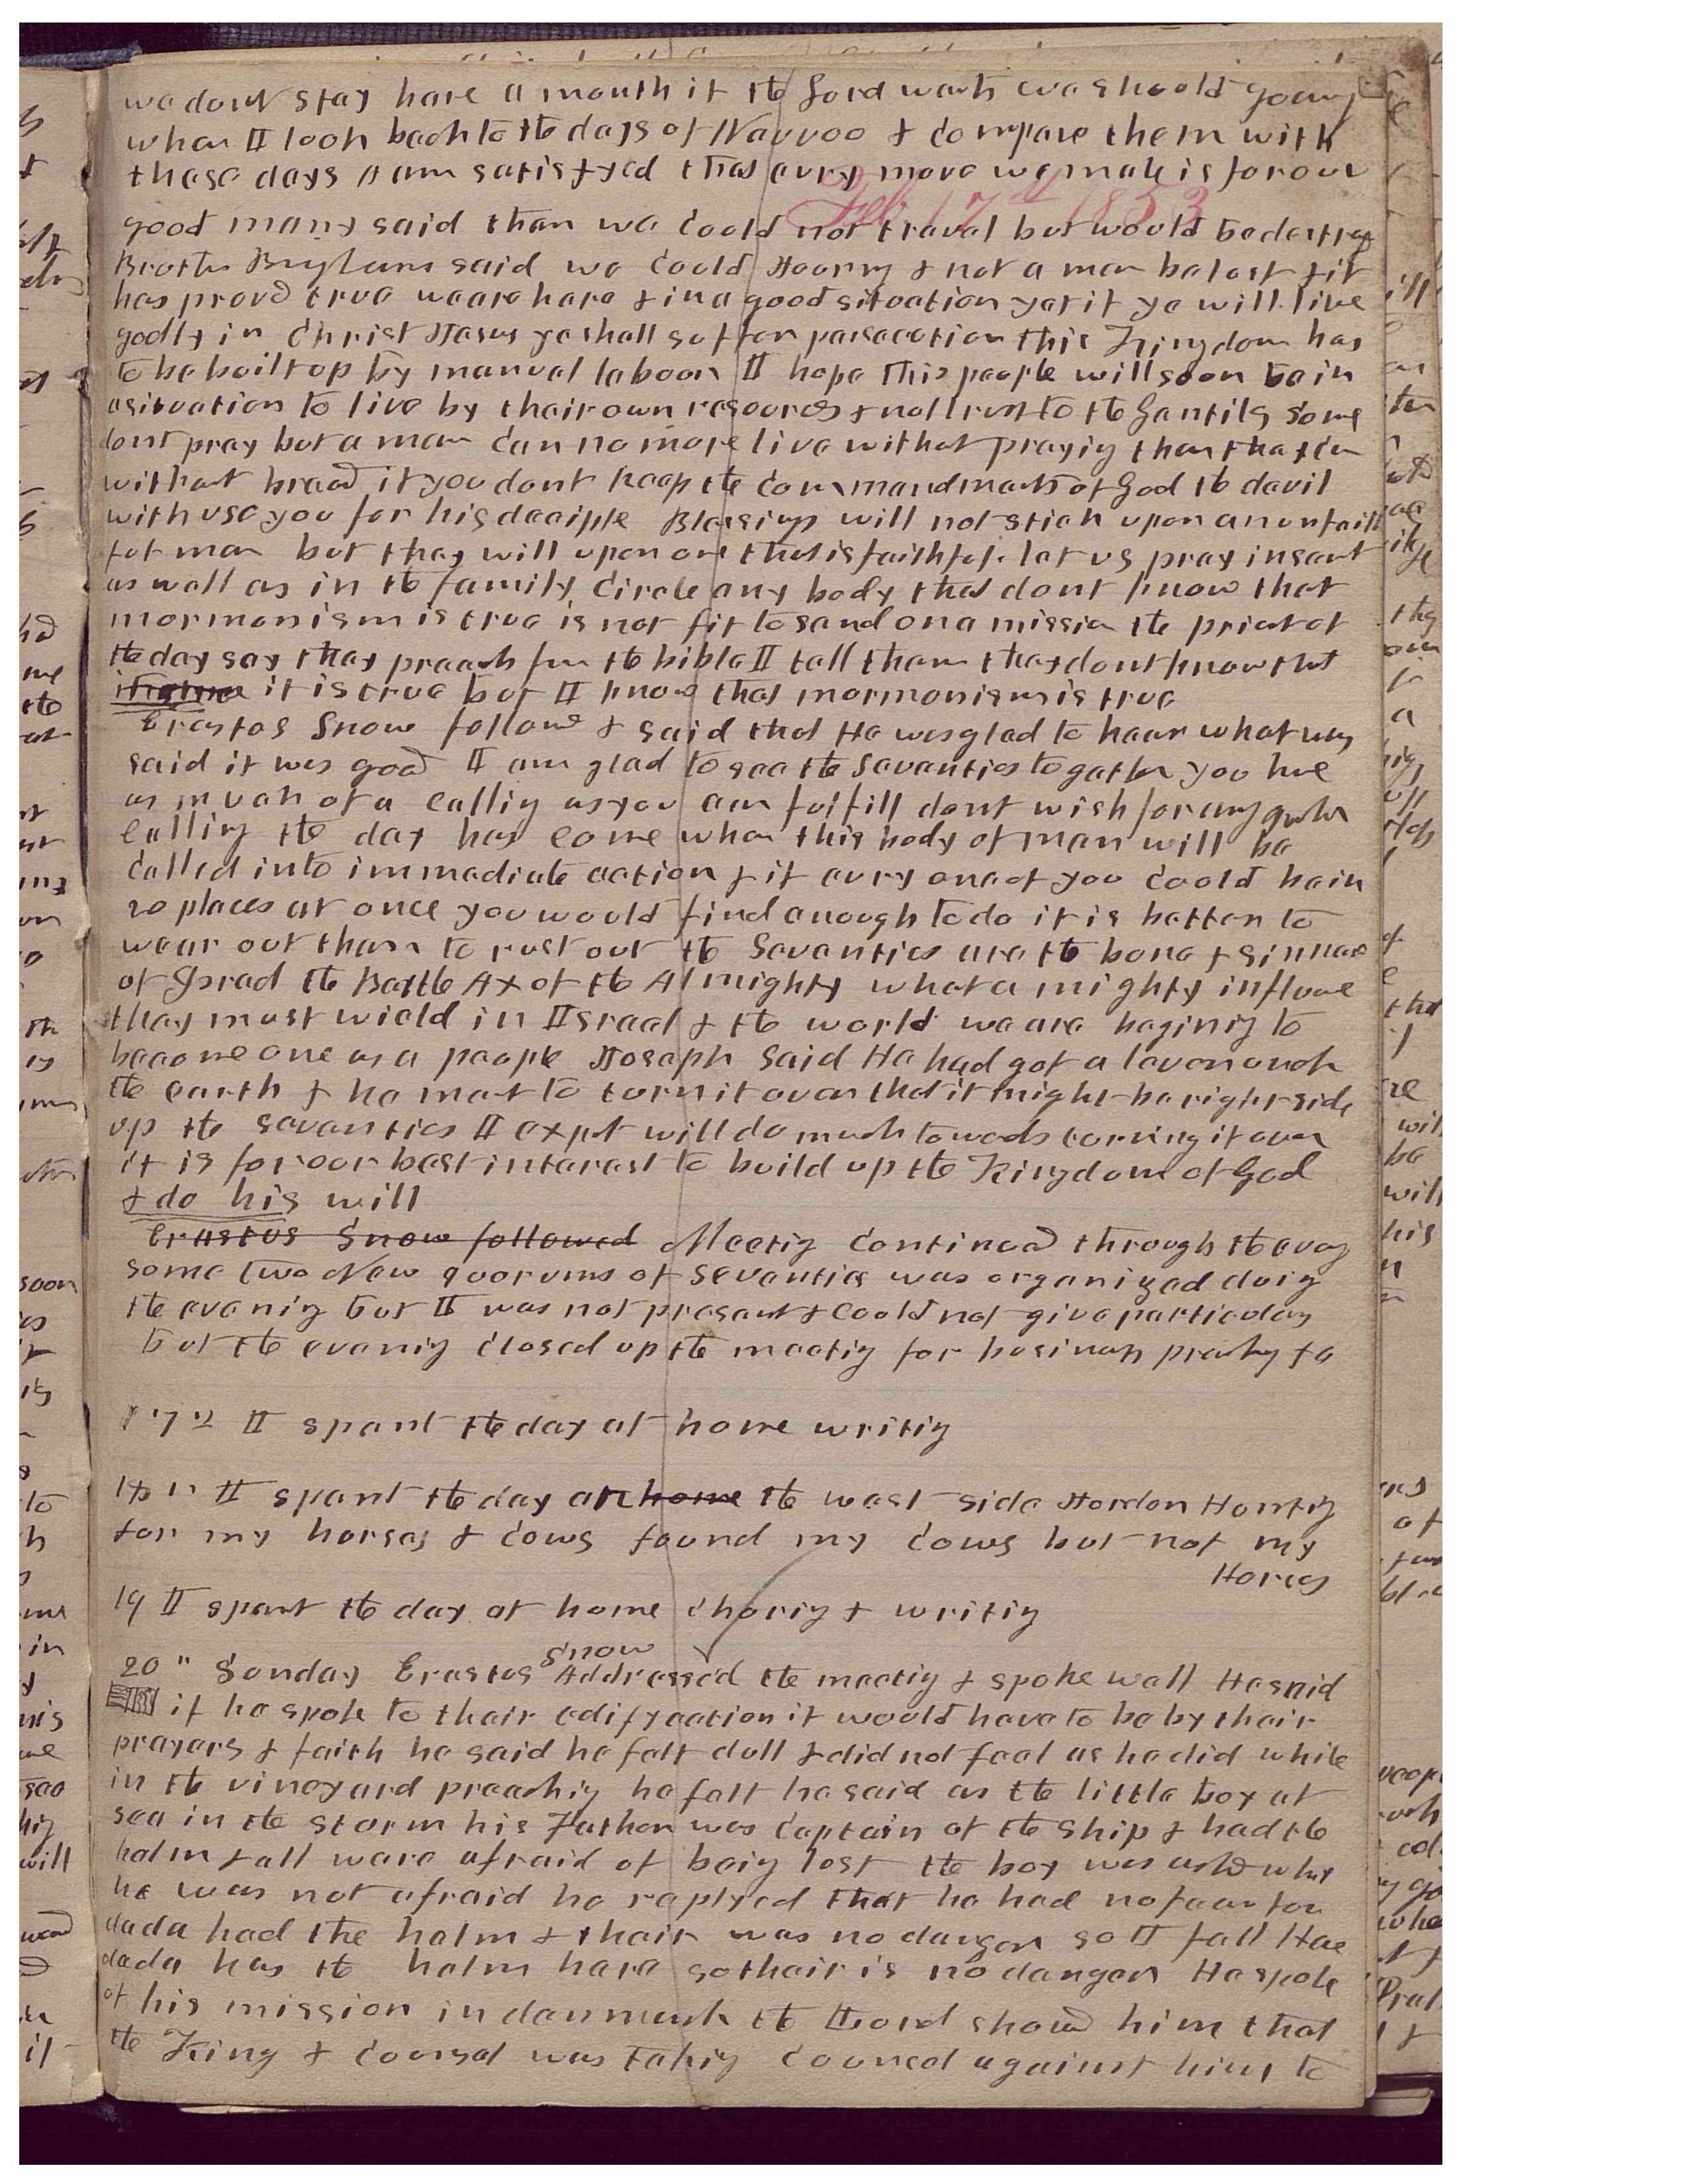 we dont stay here a month if the Lord wants we should go any
when I look back to the days of Nauvoo & compare them with
these days I am satisfyed that evry move we make is for our
Feb 17th 1853
good many said then we could not travel but would be destroy
Brother Brigham said we could Hourny & not a man be lost & it
has proved true we are here & in a good situation yet if ye will live
godly in Christ Jesus ye shall suffer persecution this Kingdom has
to be built up by manual laboor I hope this people will soon be in
a situation to live by their own resources & not trust to the Gentils some
dont pray but a man can no more live without prayig than tha can
without bread if you dont keep the commandments of God the devil
with use you for his deciple Blessings will not stick upon an unfaith
ful man but they will upon one that is faithful let us pray in secret
as well as in the family circle any body that dont know that
mormonism is true is not fit to send on a mission the priest of
the day say they preach from the bible I tell them they dont know that
it is true but I know that mormonism is true
Erastos Snow followd & said that He was glad to hear what was
said it was good I am glad to see the seventies together you have
as much of a callig as you can fulfill dont wish for any greater
callirg the day has come when this body of men will be
called into immediate action & if evry one of you could be in
20 places at once you would find enough to do it is better to
wear out than to rust out the Seventies are the bone & sinnue
of Israel the Battle Ax of the Almighty what a mighty influence
they must wield in Israel & the world we are beginig to
become one as a people Joseph said He had got a lever under
the earth & he ment to turn it over that it might be right side
up the seventies I expet will do much towards turning it over
it is for our best interest to build up the Kingdom of God
& do his will
Erastus Snow followed Meetig continued through the eveng
some two New quorums of seventies was organized durig
the evenig but I was not present & could not give particulars
but the evenig closed up the meetig for business preachg &c
17" I spent the day at home writig
18" I spent the day on home the west side Jordon Huntig
for my horses & cows found my cows but not my
Horses
19 I spent the day at home choriig & writig
Snow
20" Sunday Erastos Addressed the meetig & spoke well He said
if he spoke to their edifycation it would have to be by their
prayers & faith he said he felt dull & did not feel as he did while
in the vineyard preachig he felt he said as the little boy at
sea in the storm his Father was captain of the ship & had the
helm & all ware afraid of beig lost the boy was askd why
he was not afraid he replyed that he had no fear for
dada had the helm & their was no danger so I feel Here
dada has the helm here so their is no danger He spoke
of his mission in danmark the Lord showd him that
the King & counsel was takig councel against him to